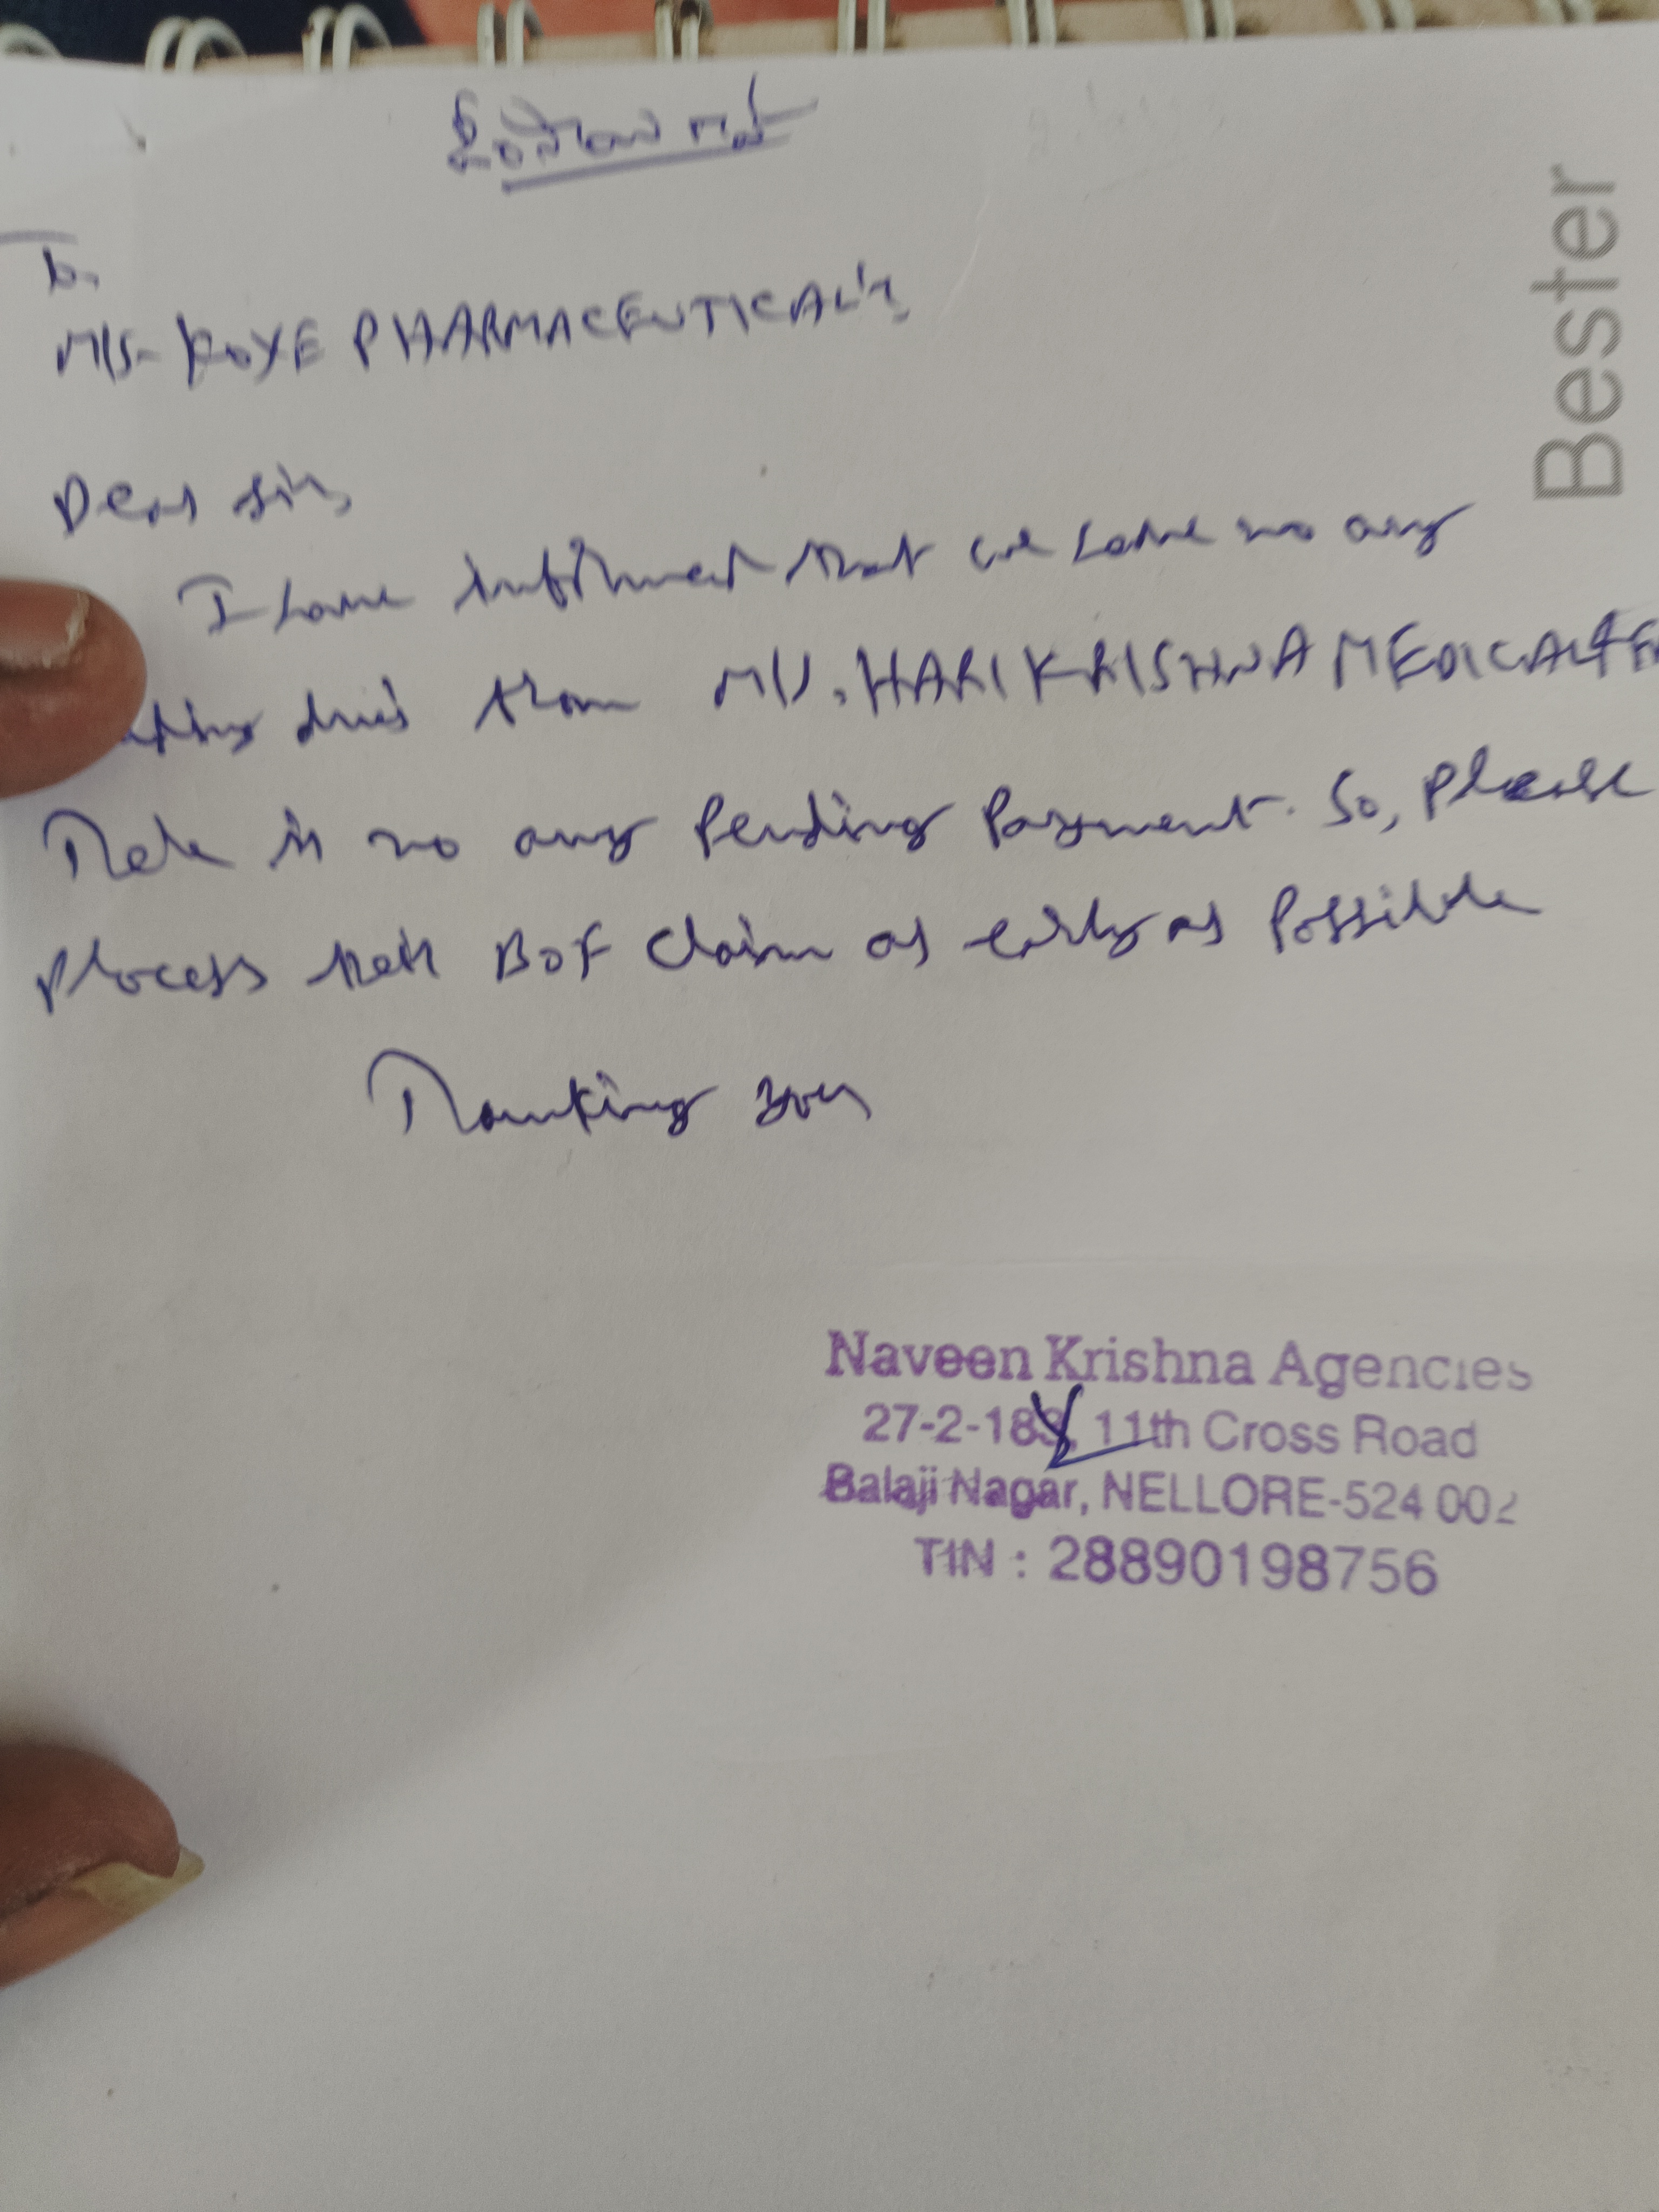 To,
M/S- KOYE PHARMACEUTICAL'S
Dear Sir,
I have informed that we have no any
dues from M/S. HARI KRISHNA MEDICAL
There is no any Pending Payment. So, Please
Process their BOF Claim as early as Possible
Thanking you
Bester
Naveen Krishna Agencies
27-2-183, 11th Cross Road
Balaji Nagar, NELLORE-524 002
TIN : 28890198756